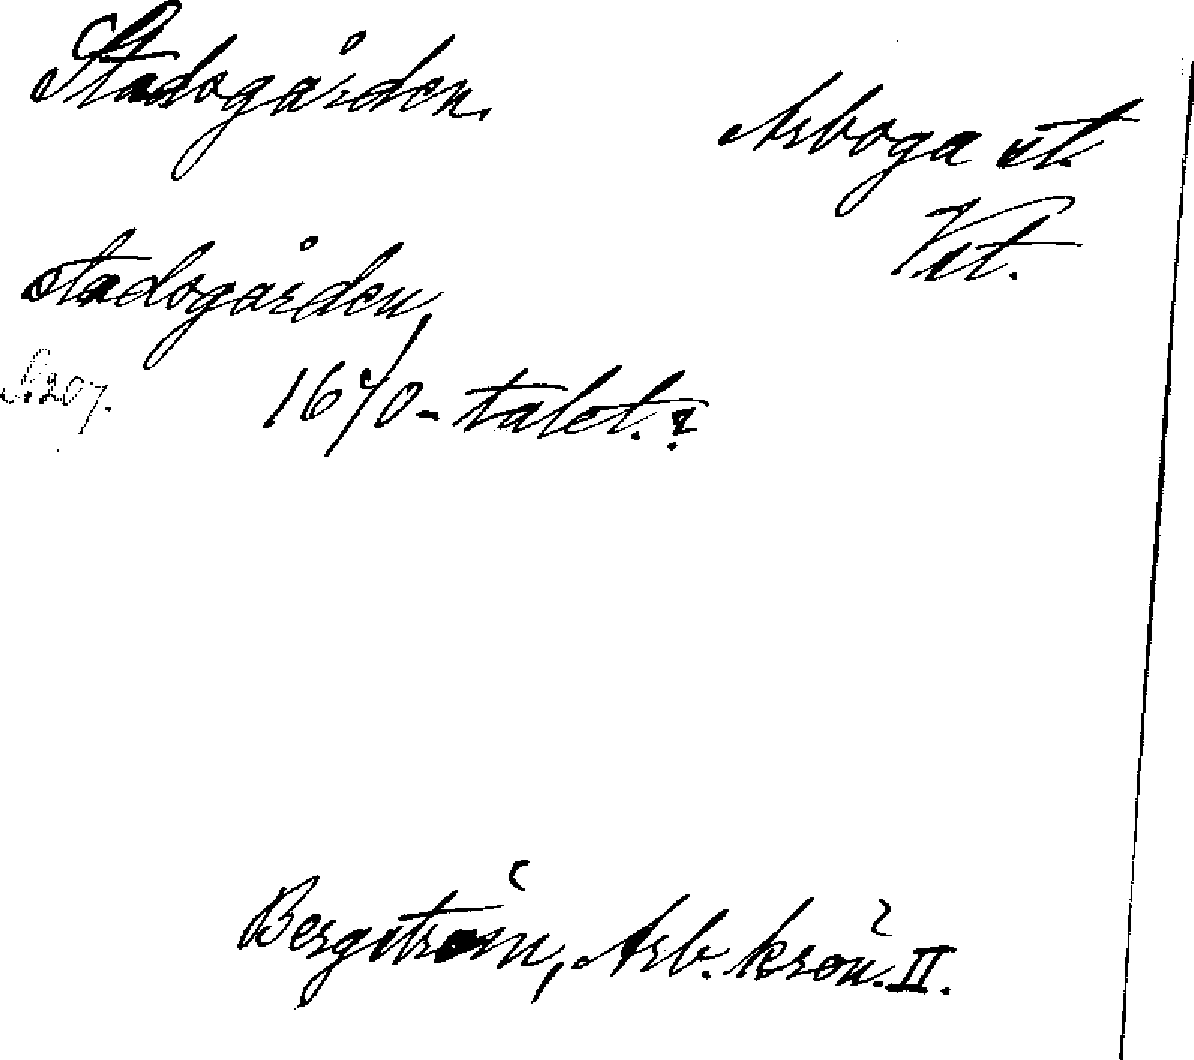 Stadsgården.
Arboga st.
Vst.
stadsgården,
S. 207.
1670-talet.?
Bergström, Arb. krön. II.